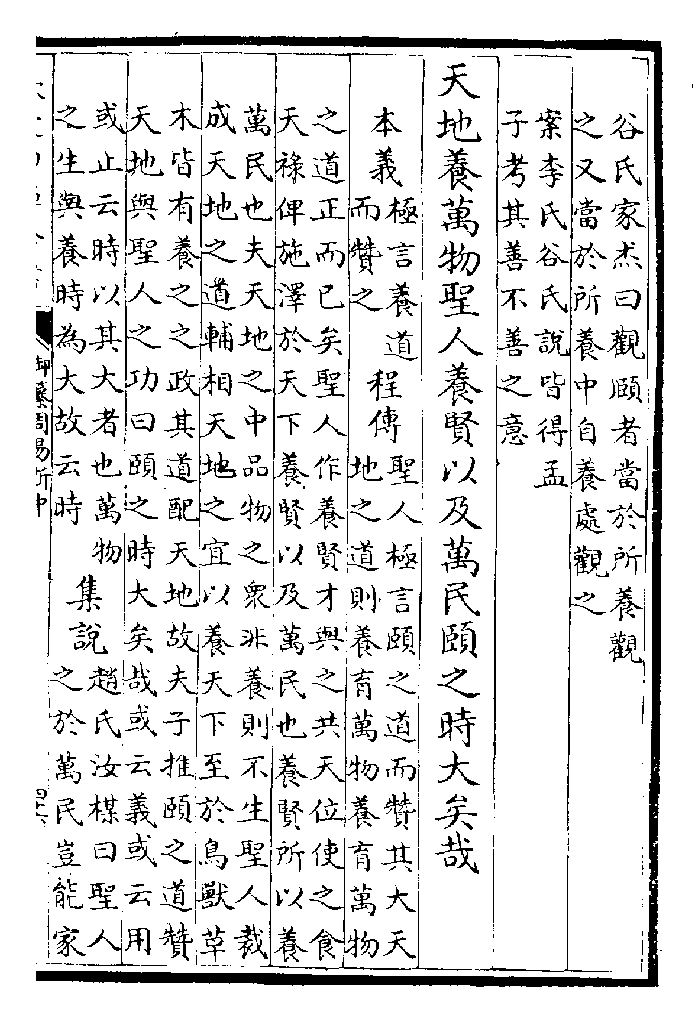 谷氏家杰曰觀頤者當於所養觀
之又當於所養中自養處觀之
案李氏谷氏說皆得孟
子考其善不善之意
天地養萬物聖人養賢以及萬民頤之時大矣哉
本義極言養道
而贊之
程傳聖人極言頤之道而贊其大天
地之道則養育萬物養育萬物
之道正而已矣聖人作養賢才與之共天位使之食
天祿俾施澤於天下養賢以及萬民也養賢所以養
萬民也夫天地之中品物之衆非養則不生聖人裁
成天地之道輔相天地之宜以養天下至於鳥獸草
木皆有養之之政其道配天地故夫子推頤之道贊
天地與聖人之功曰頤之時大矣哉或云義或云用
或止云時以其大者也萬物
之生與養時為大故云時
集說趙氏汝楳曰聖人
之於萬民豈能家
御纂周易折中